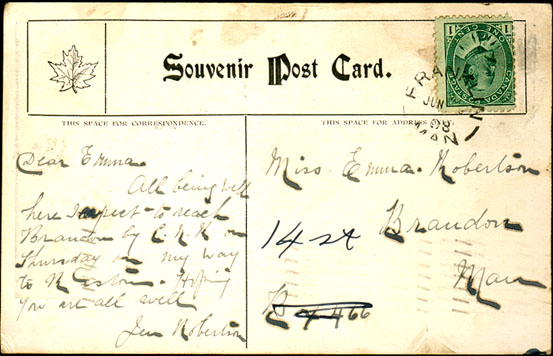 Souvenir Post Card.
CANADA POSTAGE
ONE CENT
1 1
FRANKLIN
JUN
08
MAN
THIS SPACE FOR CORRESPONDENCE.
THIS SPACE FOR ADDRESS ONLY.
Dear Emma.
All being well
here I expect to reach
Brandon by C.N.R on
Thursday on my way
to N. Hoping
you are all well
Jen Robertson
Miss Emma. Robertson
Brandon
Man
14 st
466